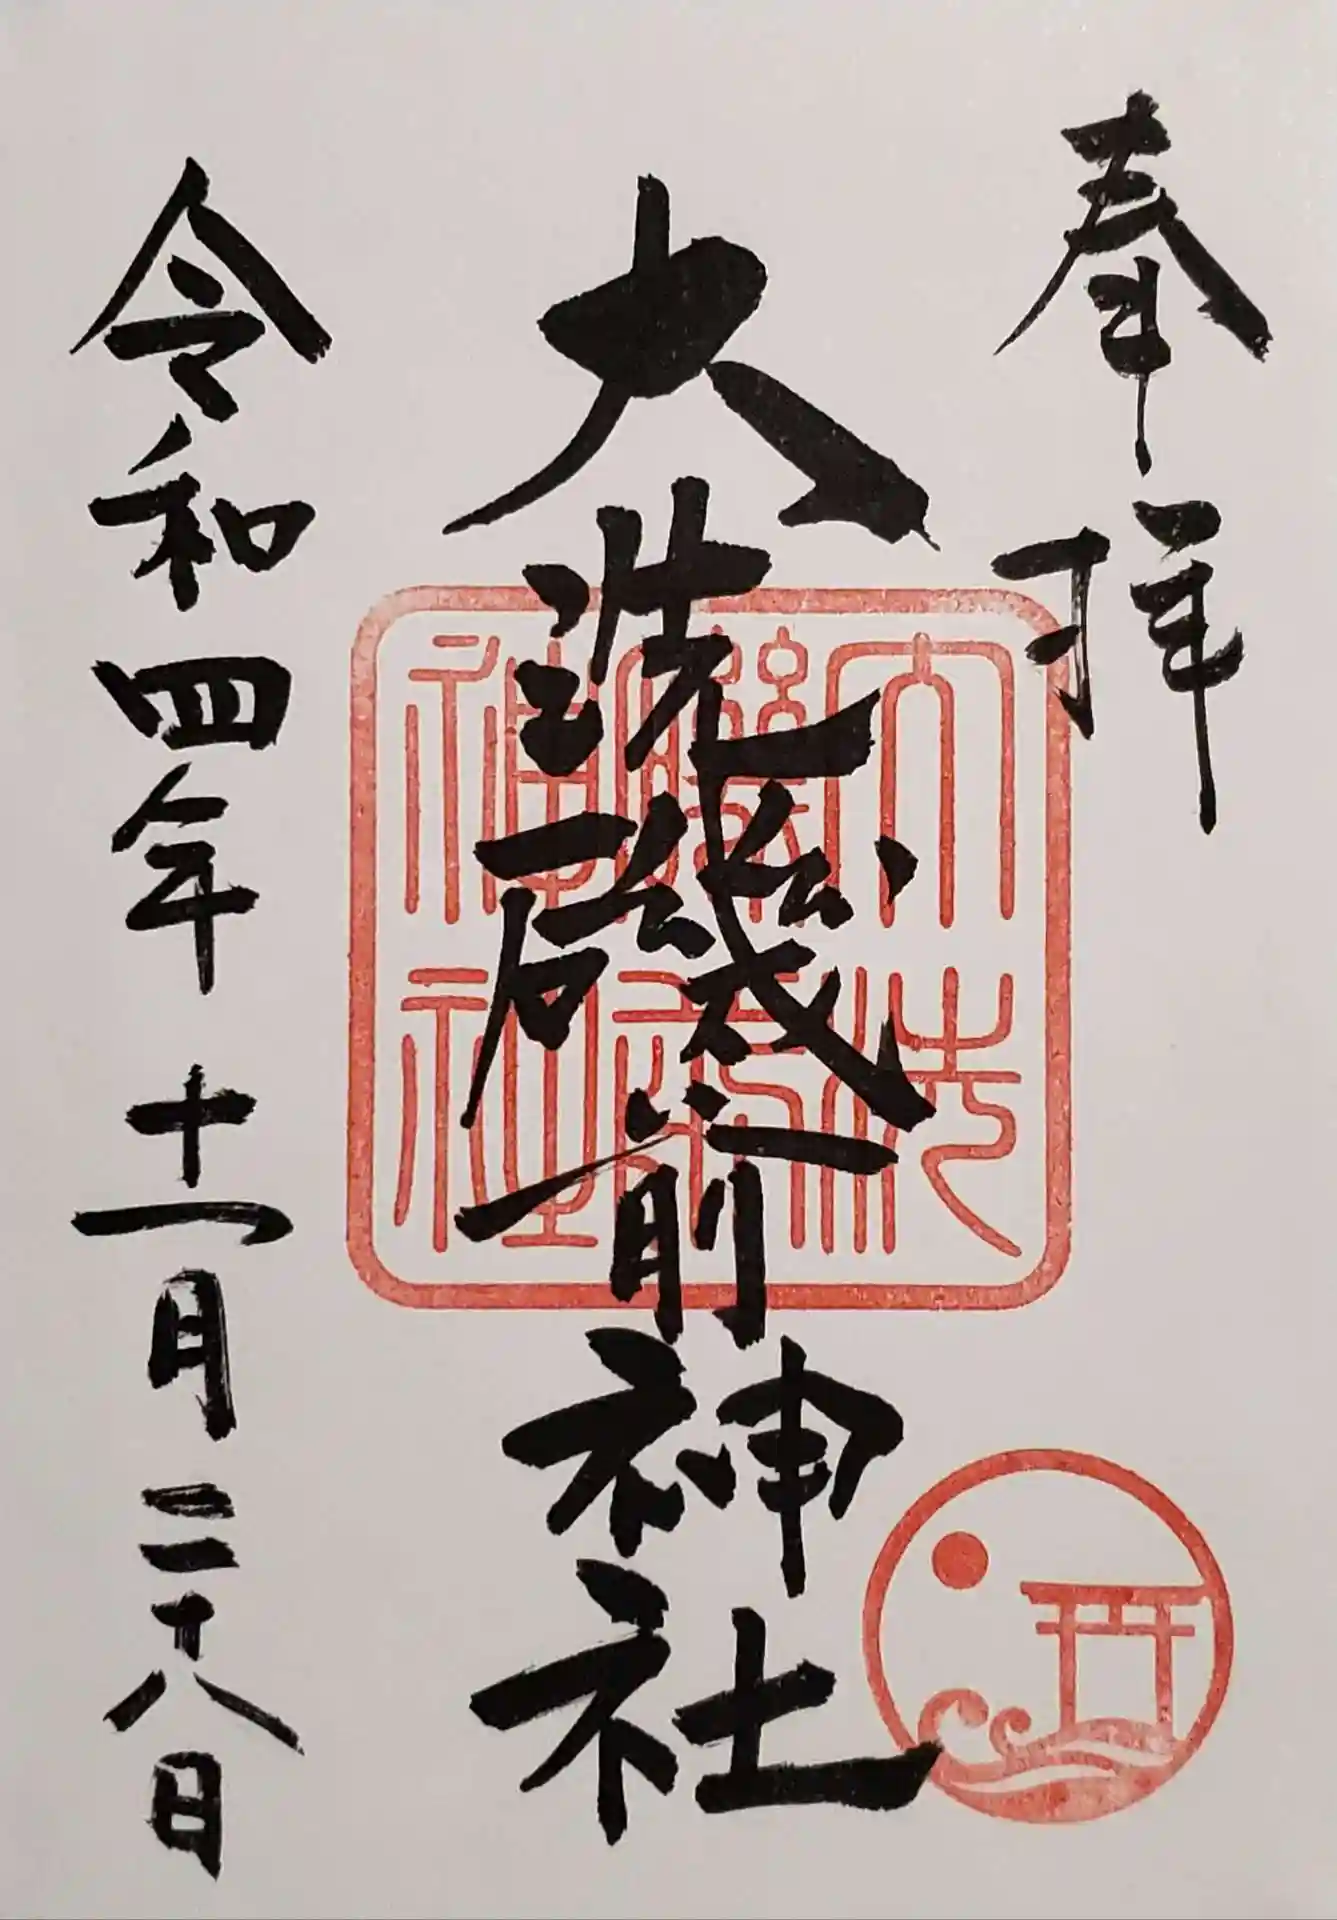 奉拝
大洗磯前神社
大洗
磯前
神社
令和四年十一月二十八日